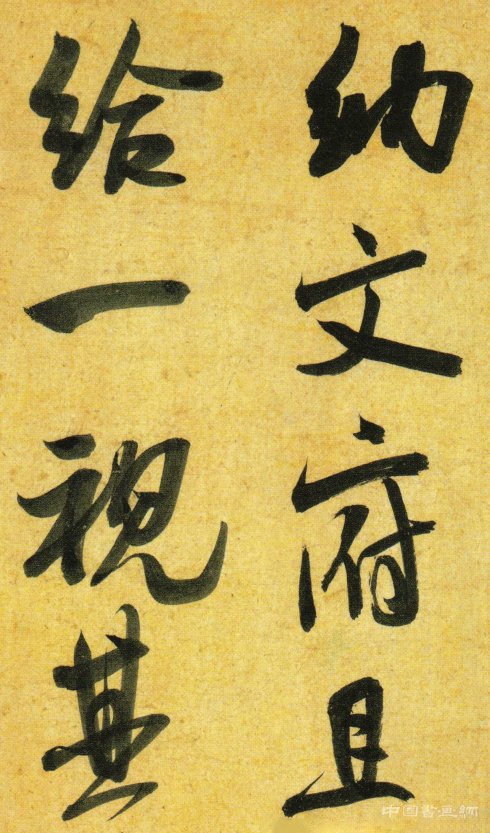 纳文府且
给一视其
中国书画网